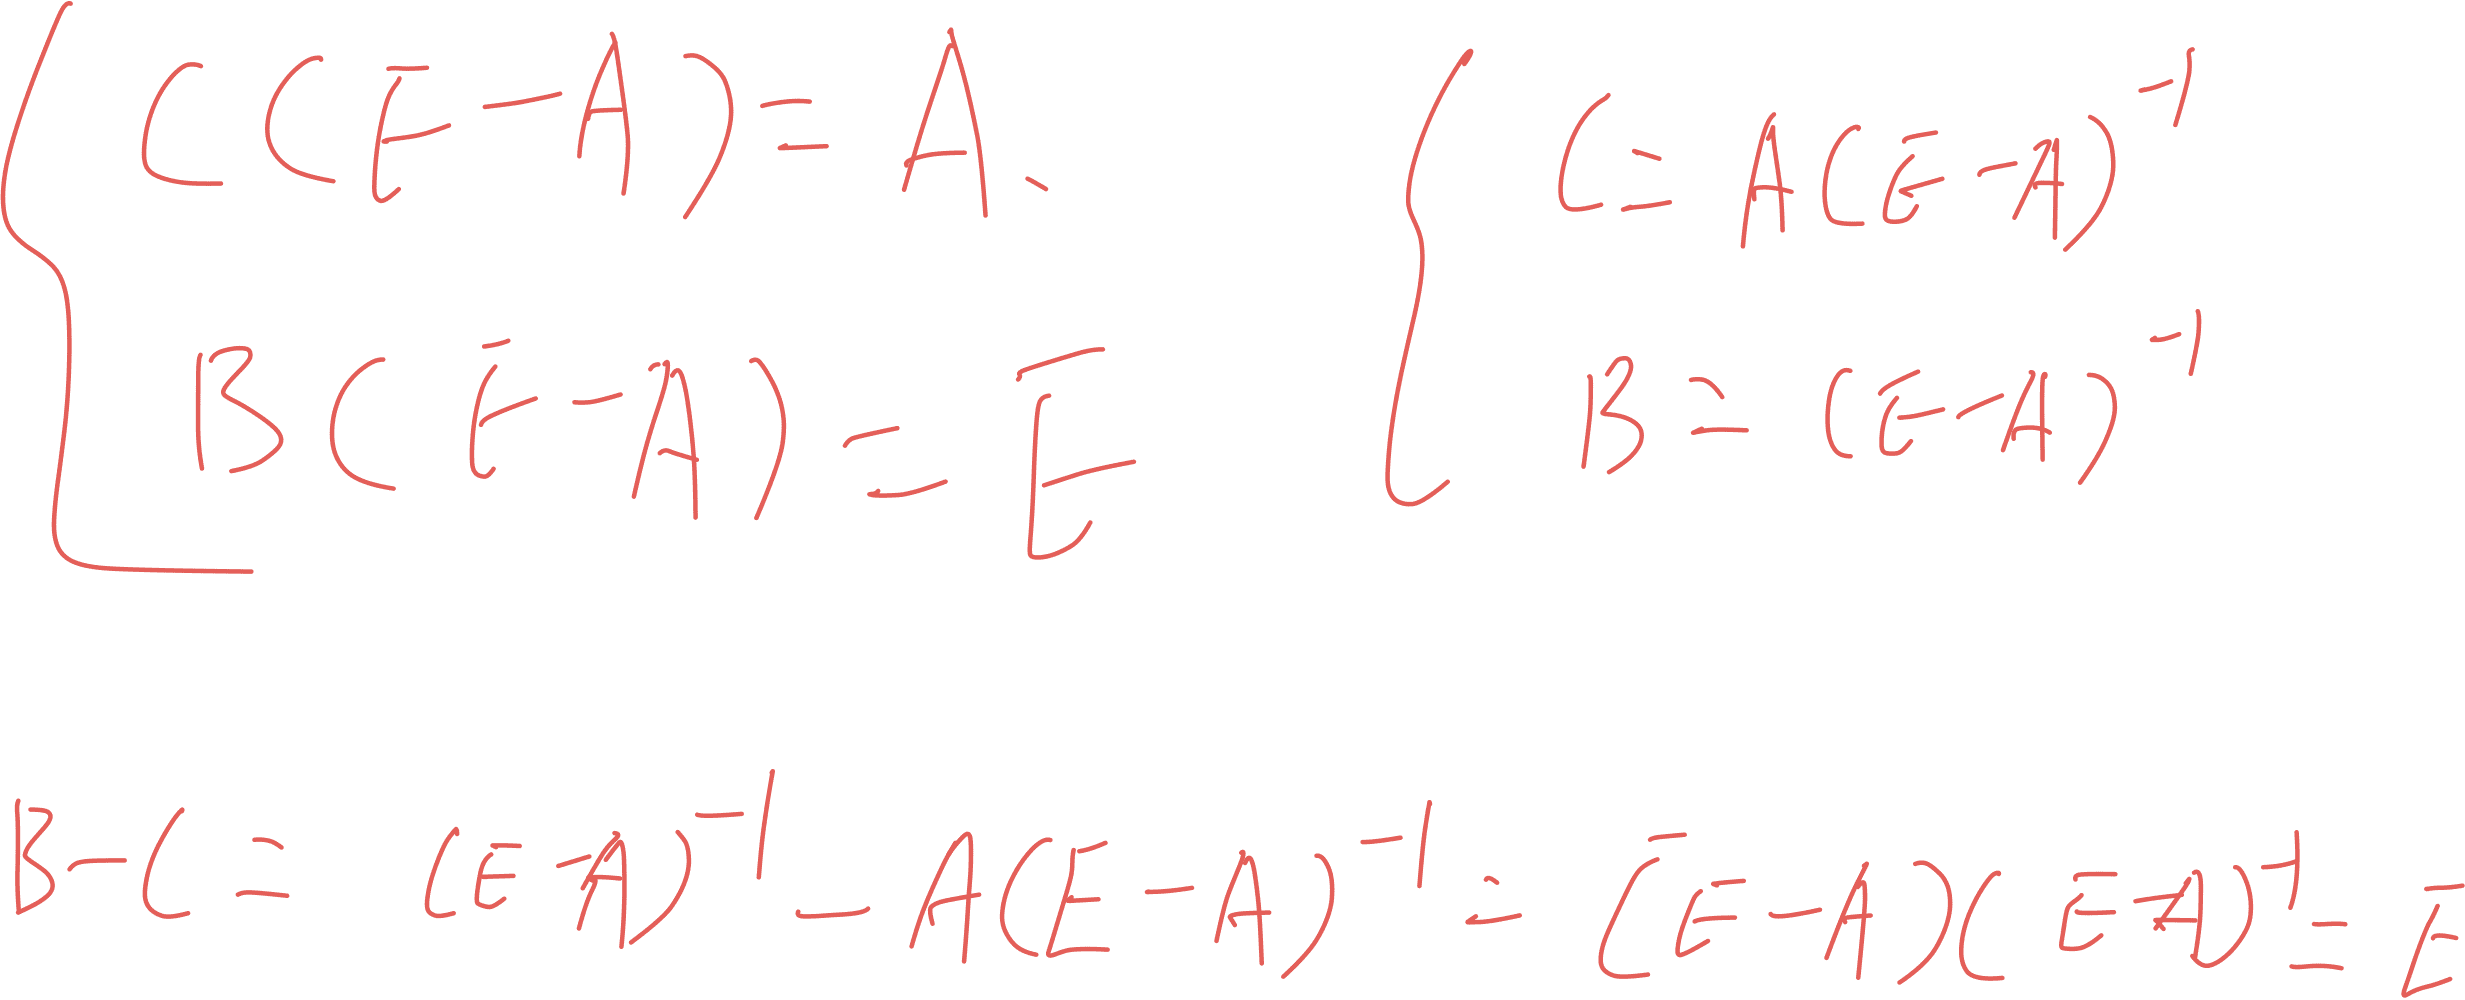 C(E-A)=A.
B(E-A)=E
C=A(E-A)⁻¹
B=(E-A)⁻¹
B-C=(E-A)⁻¹-A(E-A)⁻¹=(E-A)(E-A)⁻¹=E